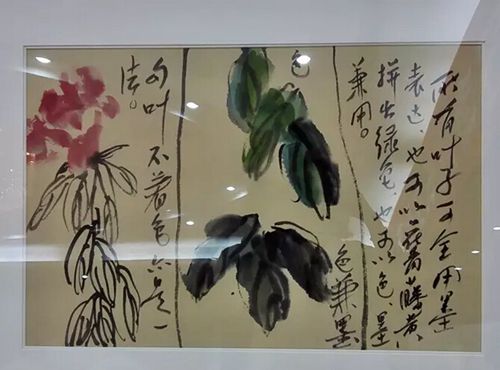 所有叶子可全用墨
表达、也可以花青藤黄
拼出绿色、也可以色、墨
兼用。
色
色兼墨
勾叶不着色亦是一
法。